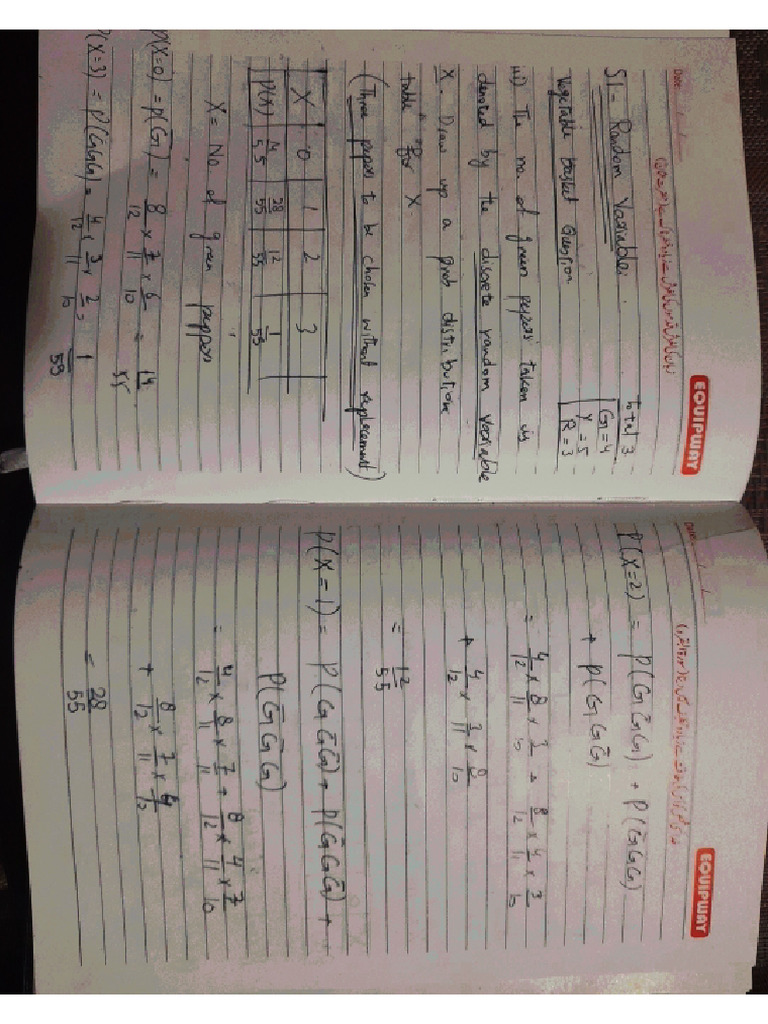 EQUIPWAY
S1- Random Variable.
Vegetable Basket Question
Total 3
G = 4
Y = 5
R = 3
iii) The no. of green pepers taken is
denoted by the discrete random variable
X. Draw up a prob distribution
table for X.
(Three pepers to be chosen without replacement)
X 0 1 2 3
P(X) 14/55 28/55 12/55 1/55
X = No of green peppers
P(X=0) = P(G̅) = 8/12 × 7/11 × 6/10 = 14/55
P(X=3) = P(GGG) = 4/12 × 3/11 × 2/10 = 1/55
EQUIPWAY
P(X=2) = P(GG̅G) + P(G̅GG)
+ P(GGG̅)
= 4/12 × 8/11 × 3/10 + 8/12 × 4/11 × 3/10
+ 4/12 × 3/11 × 8/10
= 12/55
P(X=1) = P(GG̅G̅) + P(G̅GG̅) +
P(G̅G̅G)
= 4/12 × 8/11 × 7/11 + 8/12 × 4/11 × 7/10
+ 8/12 × 7/11 × 4/10
= 28/55